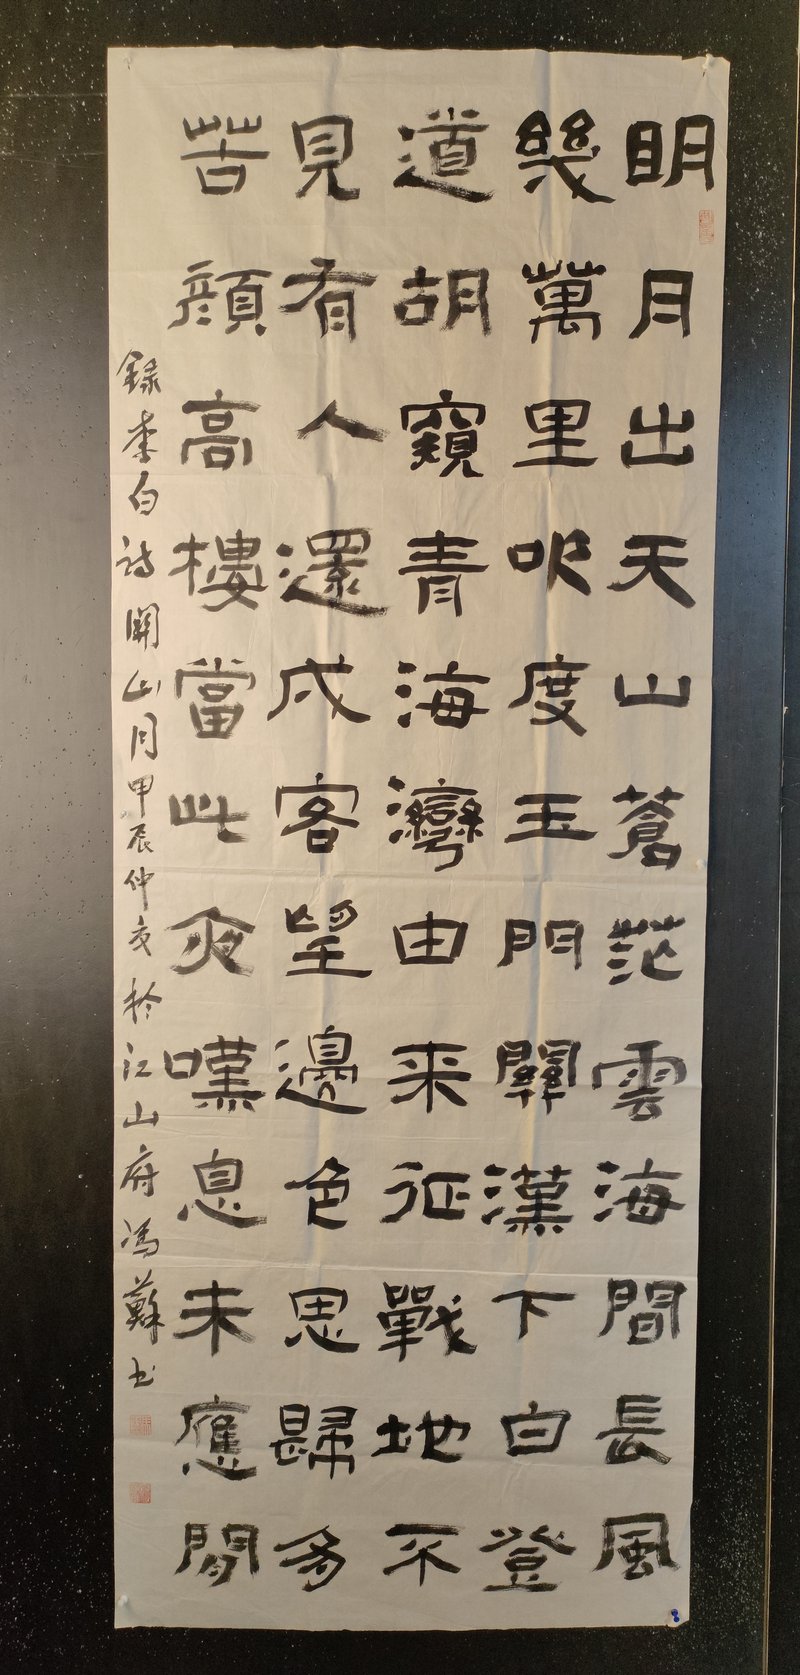 明月出天山蒼茫雲海間長風
幾萬里吹度玉門關漢下白登
道胡窺青海灣由来征戰地不
見有人還戍客望邊色思歸多
苦顔高樓當此夜嘆息未應閒
錄李白詩關山月甲辰仲夏於江山府馮蘇书